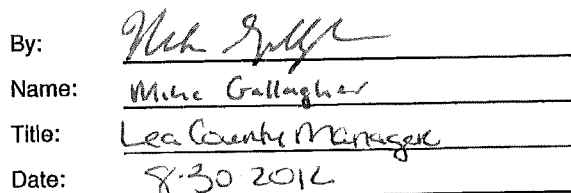 By:
Name: Mike Gallagher
Title: Lea County Manager
Date: 8-30-2012